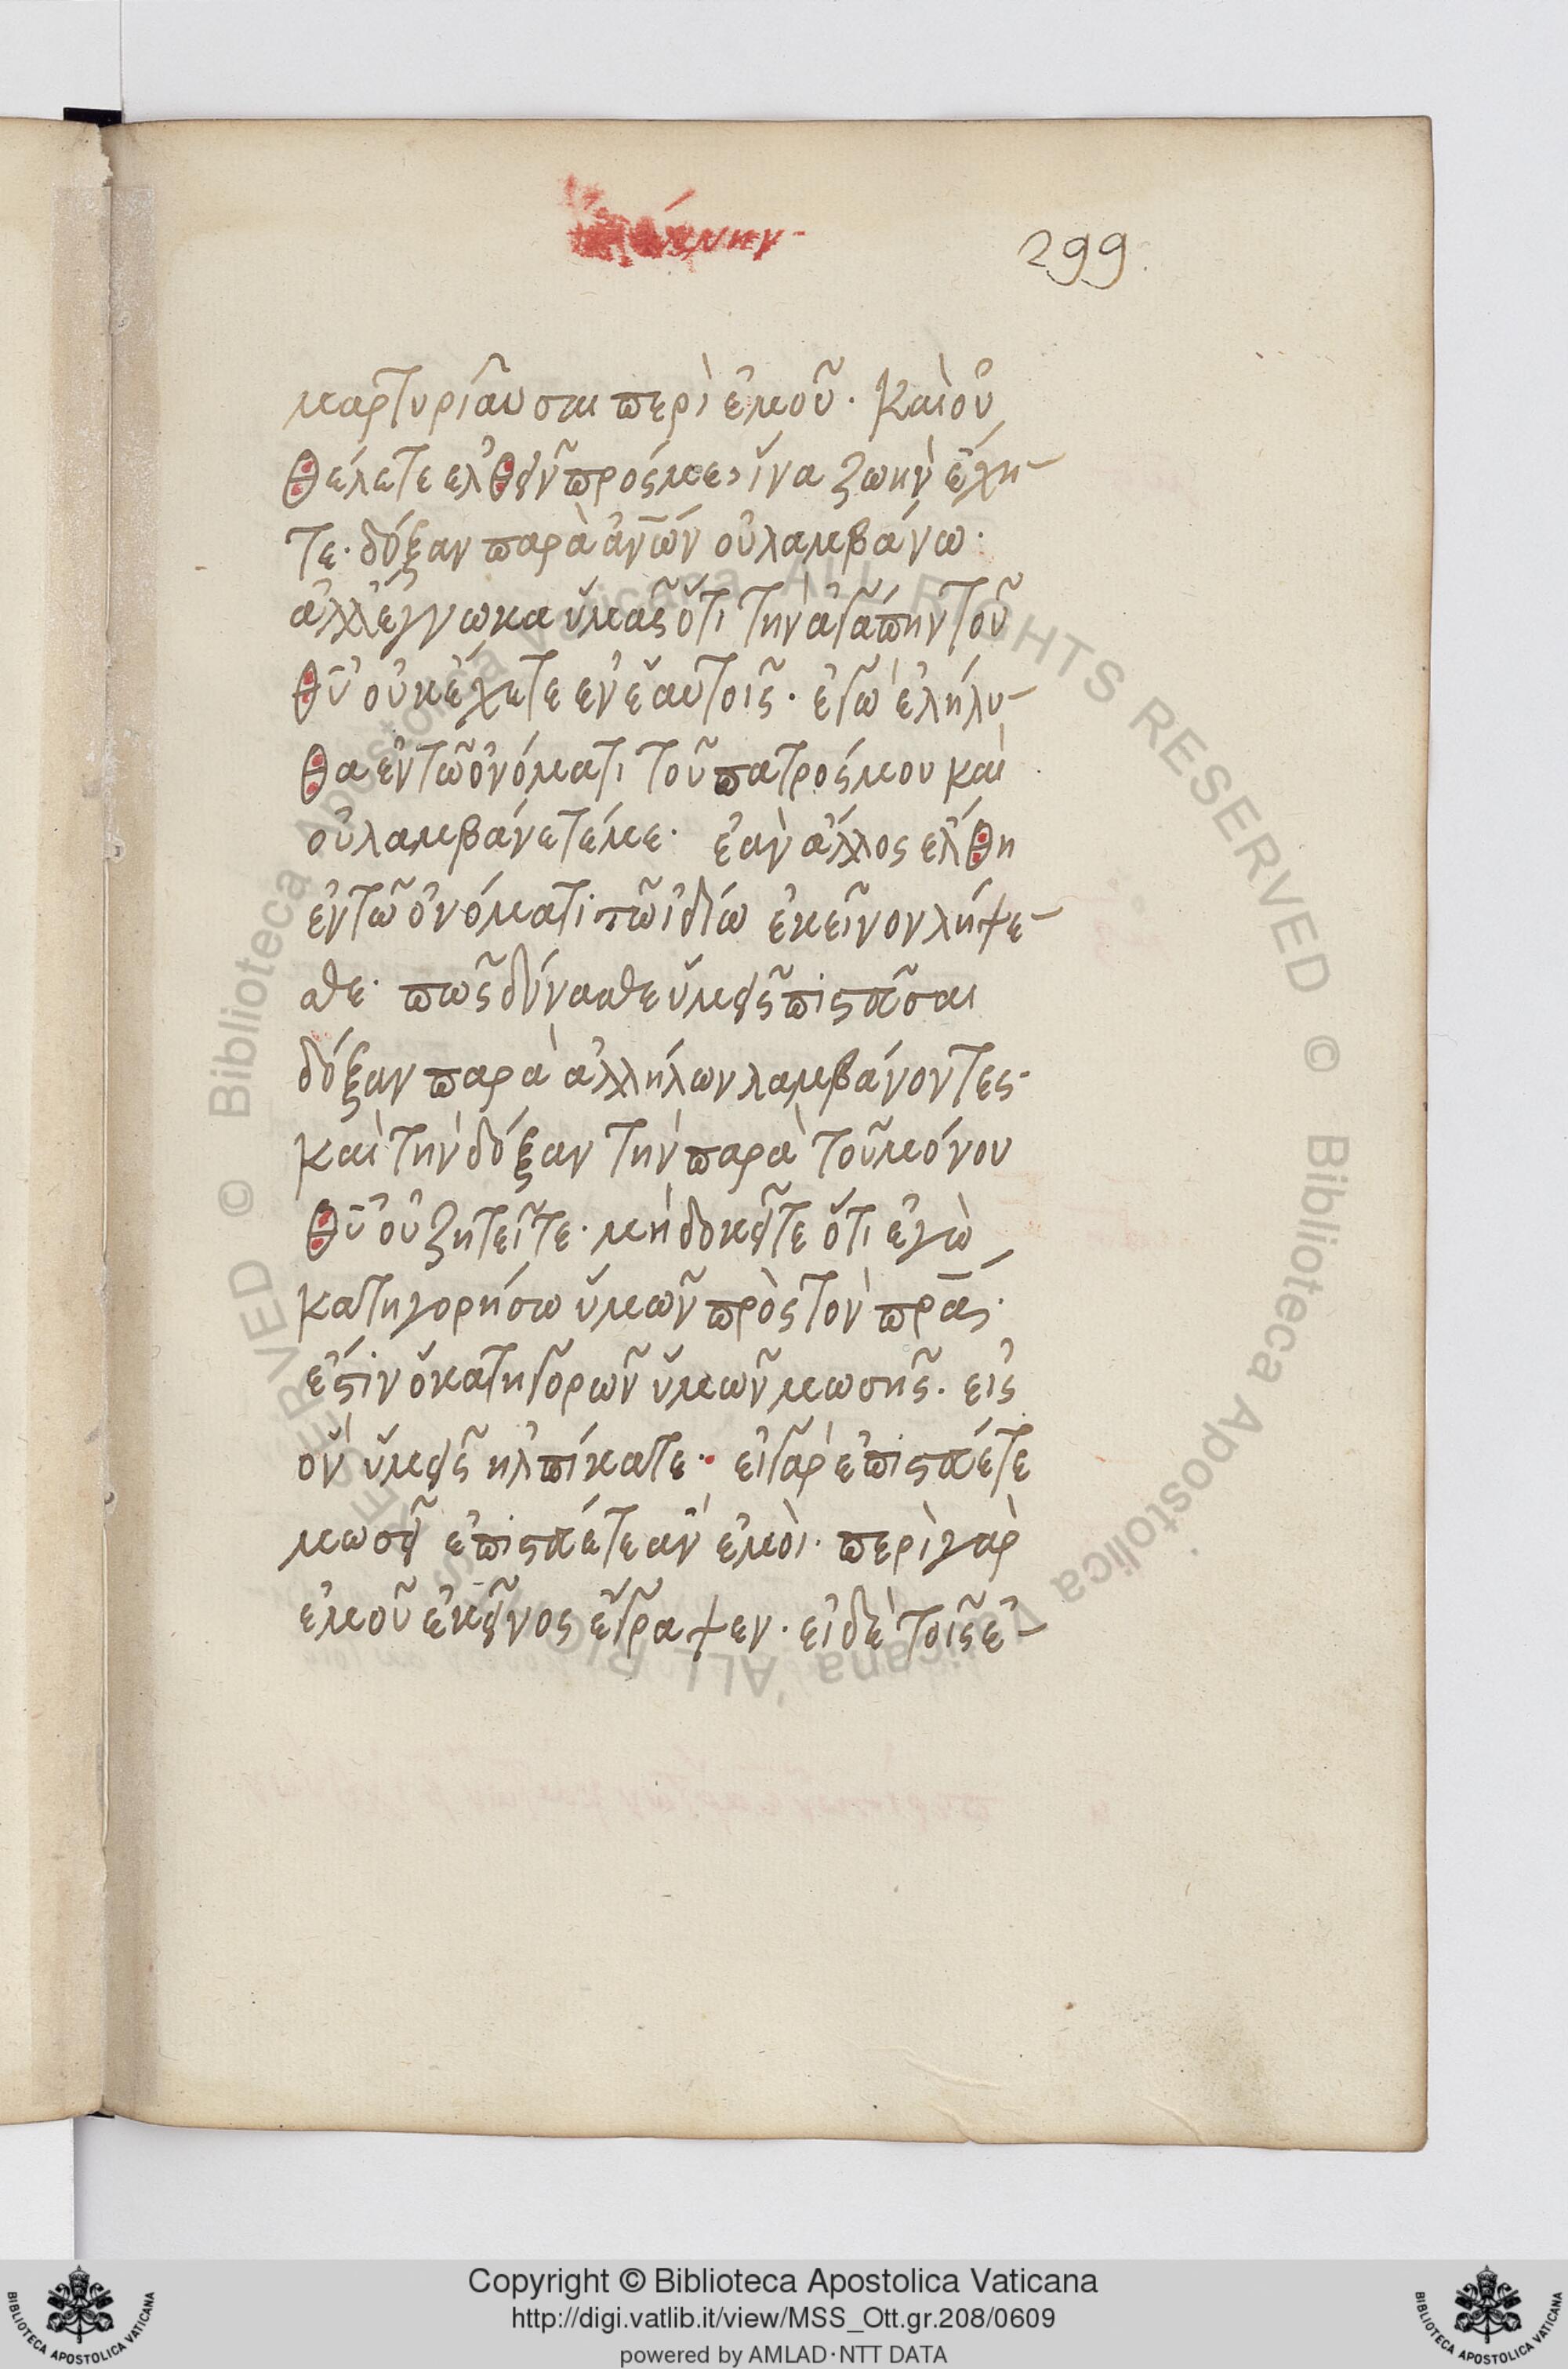 299
μαρτυρίαν σαι περὶ ἐμοῦ· Καὶ οὐ
θέλετε ελθεῖν πρός με, ἵνα ζωὴν ἔχη-
τε· δόξαν παρὰ ἀν̅ων οὐ λαμβάνω·
ἀλλ ἔγνωκα ὑμᾶς ὅτι τὴν ἀγάπην τοῦ
θ̅υ οὐκ ἔχετε εν ἑαυτοῖς· ἐγὼ ἐλήλυ-
θα ἐν τῶ ὀνόματι τοῦ πατρός μου καὶ
οὐ λαμβάνετέ με· ἐὰν ἄλλος ἔλθη
ἐν τῶ ὀνόματι τῶ ἰδίω ἐκεῖνον λήψε-
σθε· πῶς δύνασθε ὑμεῖς πιστεῦσαι
δόξαν παρὰ ἀλλήλων λαμβάνοντες·
καὶ τὴν δόξαν τὴν παρὰ τοῦ μόνου
θ̅υ οὐ ζητεῖτε· μὴ δοκεῖτε ὅτι ἐγὼ
κατηγορήσω ὑμῶν πρὸς τὸν π̅ρ̅α·
ἔστιν ὁ κατηγορῶν ὑμῶν μωσῆς· εἰς
ὃν ὑμεῖς ηλπίκατε· εἰ γὰρ ἐπιστεύετε
μωσεῖ ἐπιστεύετε ἂν ἐμὸι· περὶ γὰρ
ἐμοῦ ἐκεῖνος ἔγραψεν· εἰ δὲ τοῖς ἐ-
Copyright © Biblioteca Apostolica Vaticana
http://digi.vatlib.it/view/MSS_Ott.gr.208/0609
powered by AMLAD·NTT DATA
BIBLIOTECA APOSTOLICA VATICANA
BIBLIOTECA APOSTOLICA VATICANA
© Biblioteca Apostolica Vaticana ALL RIGHTS RESERVED © Biblioteca Apostolica Vaticana ALL RIGHTS RESERVED